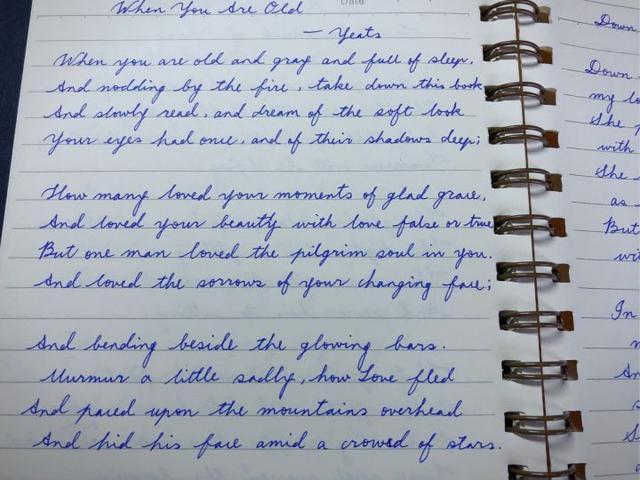 Date
When You Are Old
— Yeats
When you are old and gray and full of sleep,
And nodding by the fire, take down this book
And slowly read, and dream of the soft look
Your eyes had once, and of their shadows deep;
How many loved your moments of glad grace,
And loved your beauty with love false or true
But one man loved the pilgrim soul in you.
And loved the sorrows of your changing face;
And bending beside the glowing bars.
Murmur a little sadly, how Love fled
And paced upon the mountains overhead
And hid his face amid a crowd of stars.
Down
Down
my
She
with
She
as
But
In